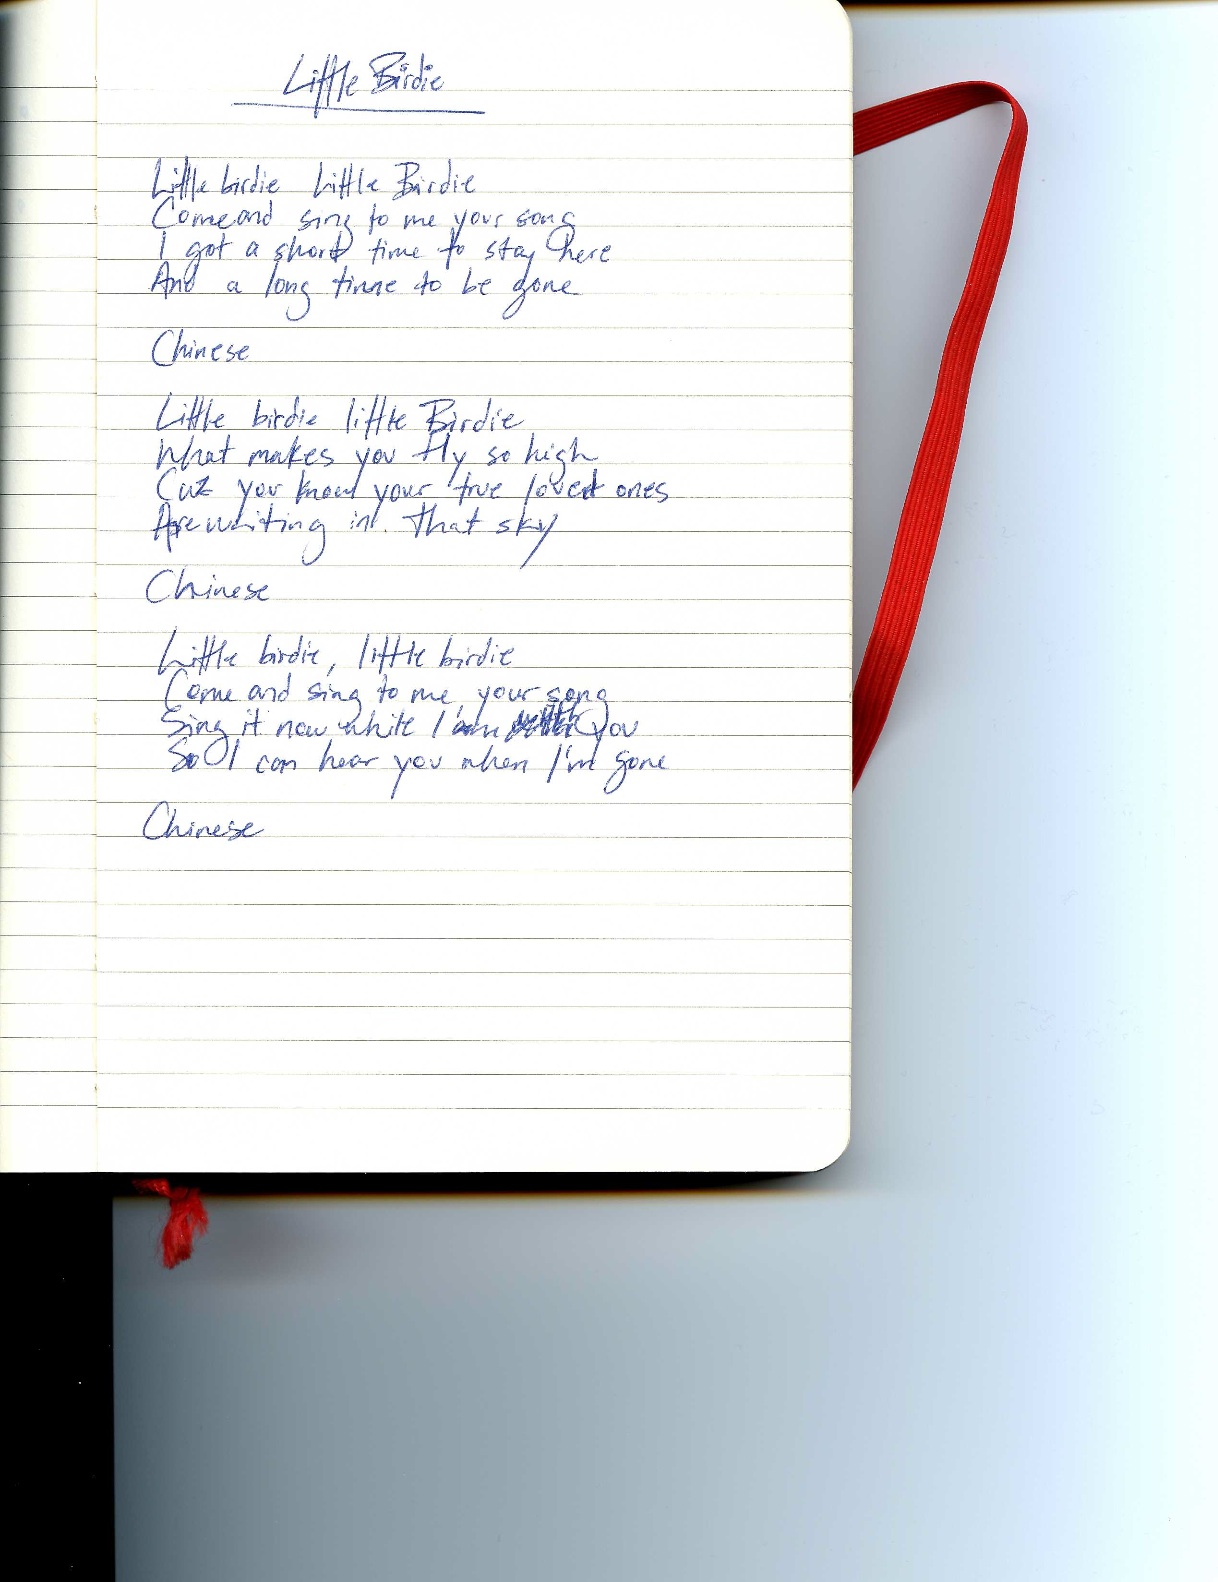 Little Birdie
Little birdie Little Birdie
Come and sing to me your song
I got a short time to stay here
And a long time to be gone
Chinese
Little birdie little Birdie
What makes you fly so high
Cuz you know your true loved ones
Are waiting in that sky
Chinese
Little birdie, little birdie
Come and sing to me your song
Sing it now while I am you
So I can hear you when I'm gone
Chinese